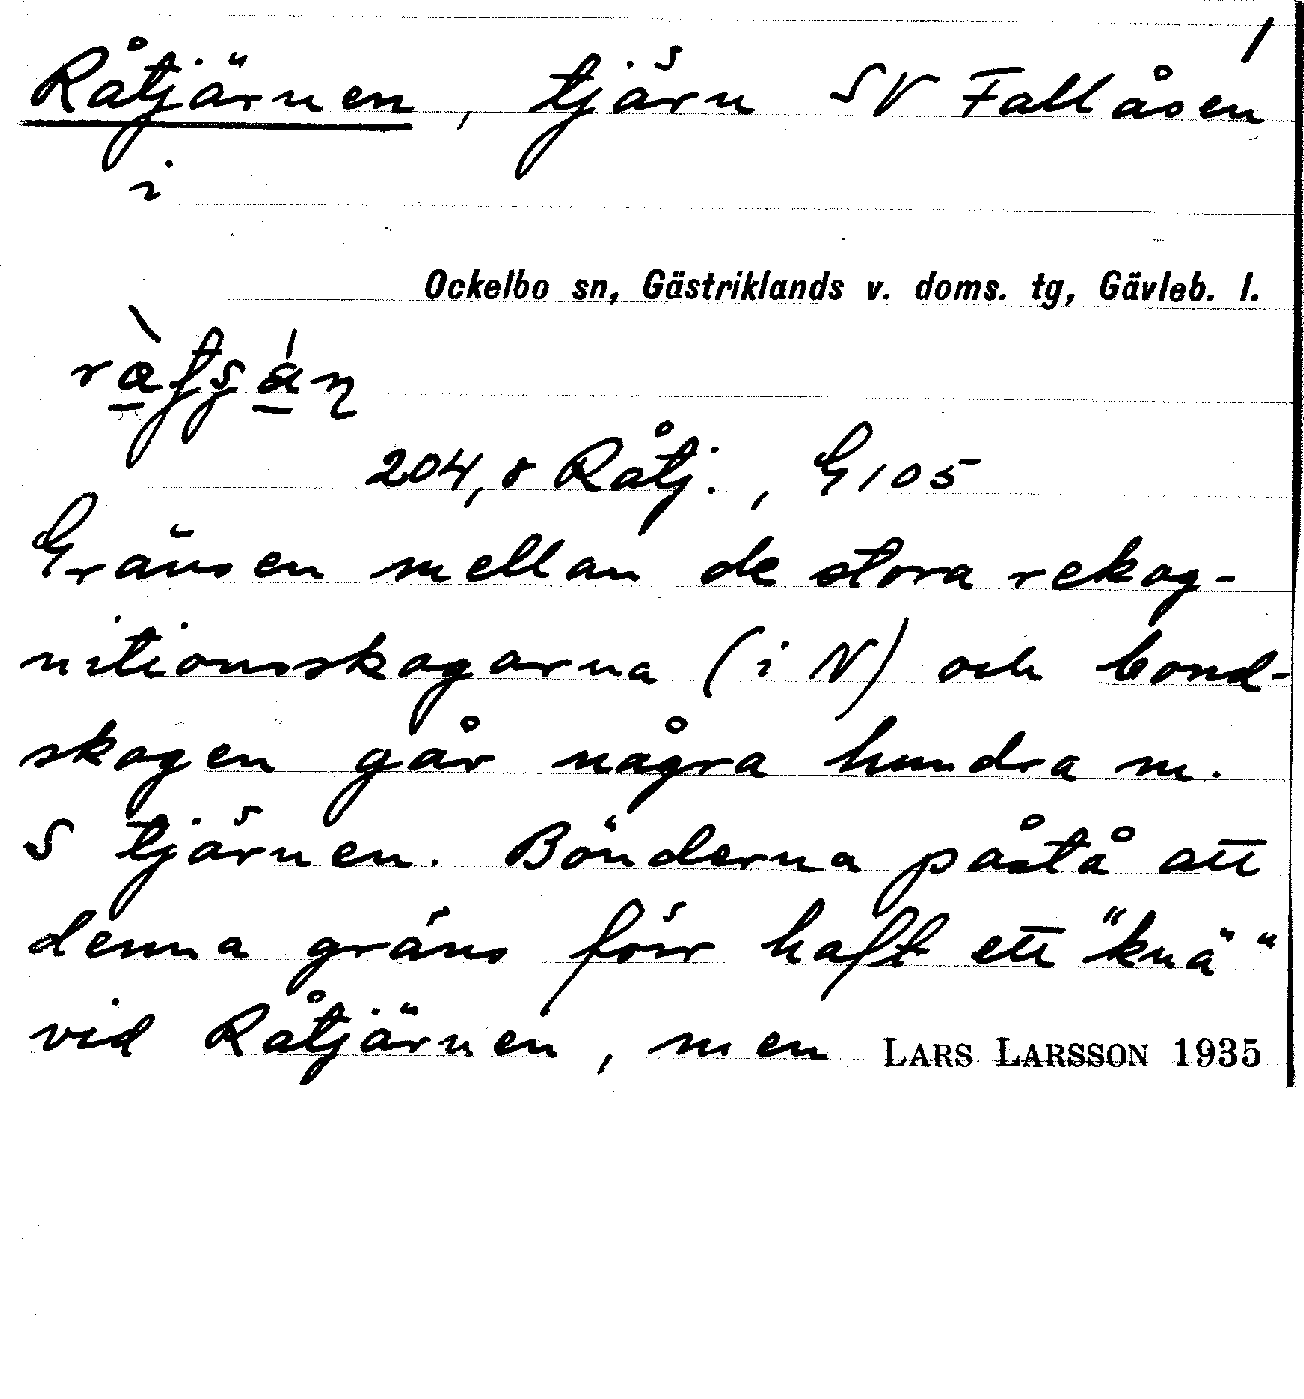 1
Råtjärnen, tjärn SV Fallåsen
i
Ockelbo sn, Gästriklands v. doms. tg, Gävleb. l.
204,8 Råtj., G105
Gränsen mellan de stora rekog-
nitionsskogarna (i N) och bond-
skogen går några hundra m.
S tjärnen. Bönderna påstå att
denna gräns förr haft ett "knä"
vid Råtjärnen, men LARS LARSSON 1935